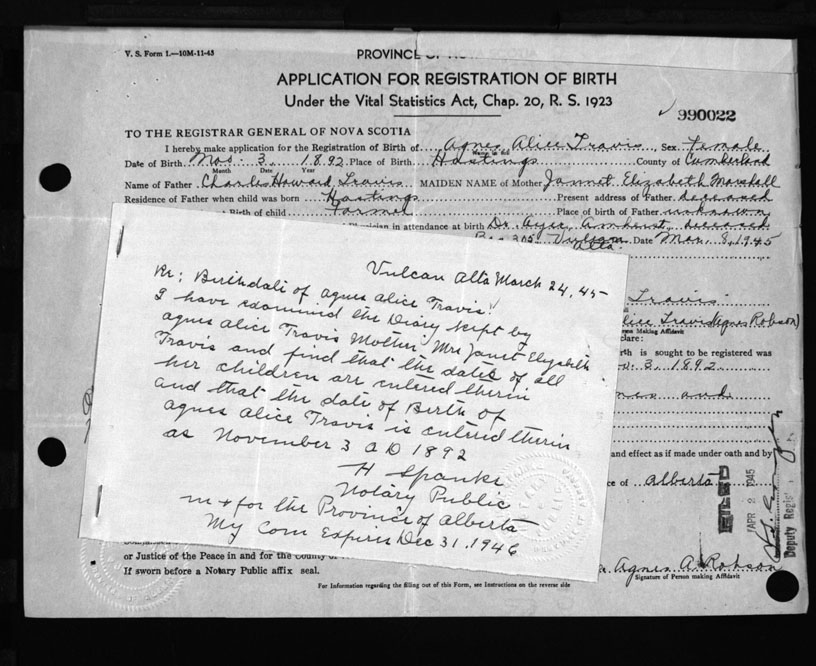 V. S. Form 1.—10M-11-43
PROVINCE OF NOVA SCOTIA
APPLICATION FOR REGISTRATION OF BIRTH
Under the Vital Statistics Act, Chap. 20, R. S. 1923
990022
TO THE REGISTRAR GENERAL OF NOVA SCOTIA
I hereby make application for the Registration of Birth of Agnes Alice Travis Sex Female
Date of Birth Nov. 3 1892 Place of Birth Hastings County of Cumberland
Month Date Year
Name of Father Charles Howard Travis MAIDEN NAME of Mother Jannet Elizabeth Marshall
Residence of Father when child was born Hastings Present address of Father deceased
Birth of child farmer Place of birth of Father unknown
Physician in attendance at birth Dr. Amherst, deceased
Box 305 Vulcan Alta. Date Mar. 8, 1945
Vulcan Alta March 24, 45
Re: Birthdate of Agnes Alice Travis
I have examined the Diary kept by
Agnes Alice Travis Mother Mrs Janet Elizabeth
Travis and find that the dates of all
her children are entered therein
and that the date of Birth of
Agnes Alice Travis is entered therein
as November 3 AD 1892
H Spanke
Notary Public
in & for the Province of Alberta
My Com Expires Dec 31, 1946
Travis
Alice Travis (Agnes Robson)
Person Making Affidavit
declare:
birth is sought to be registered was
Nov. 3, 1892
and
and effect as if made under oath and by
of Alberta
FILED
APR 2 1945
Deputy Regist
or Justice of the Peace in and for the County of
If sworn before a Notary Public affix seal.
Agnes A. Robson
Signature of Person making Affidavit
For Information regarding the filling out of this Form, see Instructions on the reverse side